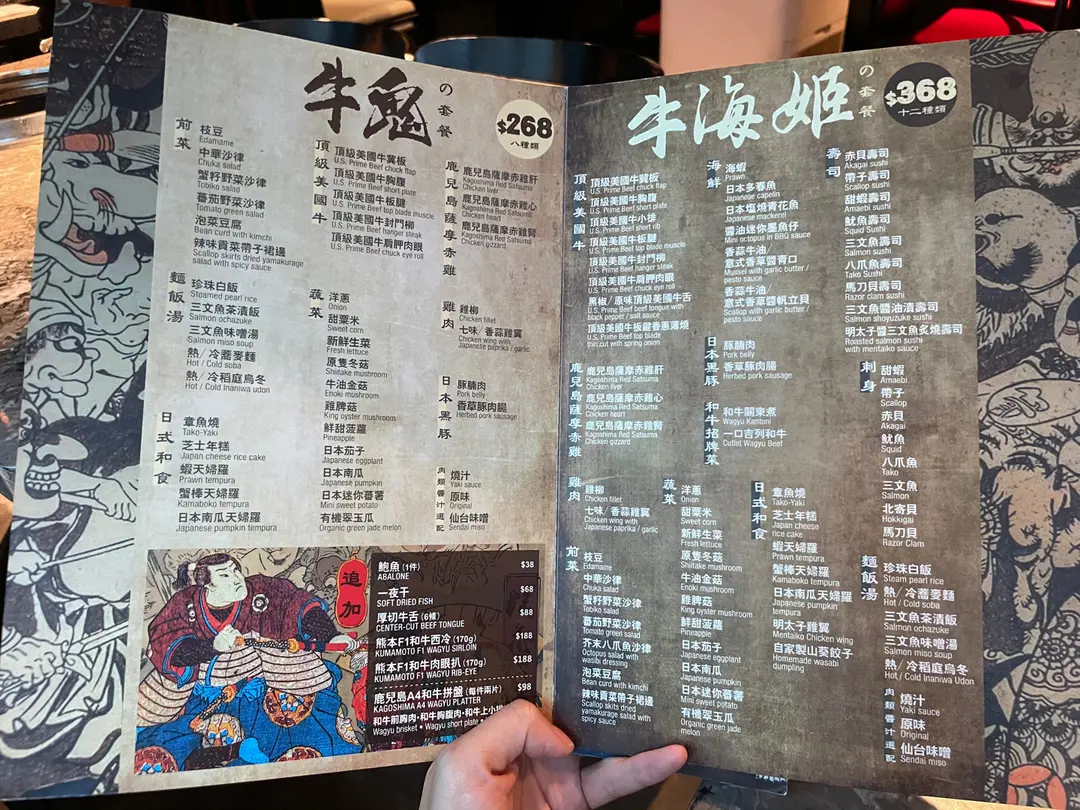 牛鬼
の套餐
$268
八種類
前菜
枝豆
Edamame
中華沙律
Chuka salad
蟹籽野菜沙律
Tobiko salad
蕃茄野菜沙律
Tomato green salad
泡菜豆腐
Bean curd with kimchi
辣味貢菜帶子裙邊
Scallop skirts dried yamakurage
salad with spicy sauce
麵飯湯
珍珠白飯
Steamed pearl rice
三文魚茶漬飯
Salmon ochazuke
三文魚味噌湯
Salmon miso soup
熱/冷蕎麥麵
Hot / Cold soba
熱/冷稻庭烏冬
Hot / Cold Inaniwa udon
日式和食
章魚燒
Tako-Yaki
芝士年糕
Japan cheese rice cake
蝦天婦羅
Prawn tempura
蟹棒天婦羅
Kamaboko tempura
日本南瓜天婦羅
Japanese pumpkin tempura
頂級美國牛
頂級美國牛翼板
U.S. Prime Beef chuck flap
頂級美國牛胸腹
U.S. Prime Beef short plate
頂級美國牛板腱
U.S. Prime Beef top blade muscle
頂級美國牛封門柳
U.S. Prime Beef hanger steak
頂級美國牛肩胛肉眼
U.S. Prime Beef chuck eye roll
蔬菜
洋蔥
Onion
甜粟米
Sweet corn
新鮮生菜
Fresh lettuce
原隻冬菇
Shiitake mushroom
牛油金菇
Enoki mushroom
雞脾菇
King oyster mushroom
鮮甜菠蘿
Pineapple
日本茄子
Japanese eggplant
日本南瓜
Japanese pumpkin
日本迷你蕃薯
Mini sweet potato
有機翠玉瓜
Organic green jade melon
鹿兒島薩摩赤雞
鹿兒島薩摩赤雞肝
Kagoshima Red Satsuma
Chicken liver
鹿兒島薩摩赤雞心
Kagoshima Red Satsuma
Chicken heart
鹿兒島薩摩赤雞腎
Kagoshima Red Satsuma
Chicken gizzard
雞肉
雞柳
Chicken fillet
七味/香蒜雞翼
Chicken wing with
Japanese paprika / garlic
日本黑豚
豚腩肉
Pork belly
香草豚肉腸
Herbed pork sausage
肉類醬汁選配
燒汁
Yaki sauce
原味
Original
仙台味噌
Sendai miso
追加
鮑魚(1件)
ABALONE
$38
一夜干
SOFT DRIED FISH
$68
厚切牛舌(6條)
CENTER-CUT BEEF TONGUE
$88
熊本F1和牛西冷(170g)
KUMAMOTO F1 WAGYU SIRLOIN
$188
熊本F1和牛肉眼扒(170g)
KUMAMOTO F1 WAGYU RIB-EYE
$188
鹿兒島A4和牛拼盤(每件兩片)
KAGOSHIMA A4 WAGYU PLATTER
$98
和牛前胸肉・和牛胸腹肉・和牛上小排
Wagyu brisket • Wagyu short plate •
牛海姬
の套餐
$368
十二種類
頂級美國牛
頂級美國牛翼板
U.S. Prime Beef chuck flap
頂級美國牛胸腹
U.S. Prime Beef short plate
頂級美國牛小排
U.S. Prime Beef short rib
頂級美國牛板腱
U.S. Prime Beef top blade muscle
頂級美國牛封門柳
U.S. Prime Beef hanger steak
頂級美國牛肩胛肉眼
U.S. Prime Beef chuck eye roll
黑椒/原味頂級美國牛舌
U.S. Prime Beef tongue with
black pepper / salt sauce
頂級美國牛板腱香蔥薄燒
U.S. Prime Beef top blade
thin cut with spring onion
鹿兒島薩摩赤雞
鹿兒島薩摩赤雞肝
Kagoshima Red Satsuma
Chicken liver
鹿兒島薩摩赤雞心
Kagoshima Red Satsuma
Chicken heart
鹿兒島薩摩赤雞腎
Kagoshima Red Satsuma
Chicken gizzard
雞肉
雞柳
Chicken fillet
七味/香蒜雞翼
Chicken wing with
Japanese paprika / garlic
前菜
枝豆
Edamame
中華沙律
Chuka salad
蟹籽野菜沙律
Tobiko salad
蕃茄野菜沙律
Tomato green salad
芥末八爪魚沙律
Octopus salad with
wasabi dressing
泡菜豆腐
Bean curd with kimchi
辣味貢菜帶子裙邊
Scallop skits dried
yamakurage salad with
spicy sauce
海鮮
海蝦
Prawn
日本多春魚
Japanese capelin
日本塩燒青花魚
Japanese mackerel
醬油迷你墨魚仔
Mini octopus in BBQ sauce
香蒜牛油/
意式香草醬青口
Mussel with garlic butter /
pesto sauce
香蒜牛油/
意式香草醬帆立貝
Scallop with garlic butter /
pesto sauce
日本黑豚
豚腩肉
Pork belly
香草豚肉腸
Herbed pork sausage
和牛招牌菜
和牛關東煮
Wagyu Kantoni
一口吉列和牛
Cutlet Wagyu Beef
蔬菜
洋蔥
Onion
甜粟米
Sweet corn
新鮮生菜
Fresh lettuce
原隻冬菇
Shiitake mushroom
牛油金菇
Enoki mushroom
雞脾菇
King oyster mushroom
鮮甜菠蘿
Pineapple
日本茄子
Japanese eggplant
日本南瓜
Japanese pumpkin
日本迷你蕃薯
Mini sweet potato
有機翠玉瓜
Organic green jade
melon
日式和食
章魚燒
Tako-Yaki
芝士年糕
Japan cheese
rice cake
蝦天婦羅
Prawn tempura
蟹棒天婦羅
Kamaboko tempura
日本南瓜天婦羅
Japanese pumpkin
tempura
明太子雞翼
Mentaiko Chicken wing
自家製山葵餃子
Homemade wasabi
dumpling
壽司
赤貝壽司
Akagai sushi
帶子壽司
Scallop sushi
甜蝦壽司
Amaebi sushi
魷魚壽司
Squid Sushi
三文魚壽司
Salmon sushi
八爪魚壽司
Tako Sushi
馬刀貝壽司
Razor clam sushi
三文魚醬油漬壽司
Salmon shoyuzuke sushi
明太子醬三文魚炙燒壽司
Roasted salmon sushi
with mentaiko sauce
刺身
甜蝦
Amaebi
帶子
Scallop
赤貝
Akagai
魷魚
Squid
八爪魚
Tako
三文魚
Salmon
北寄貝
Hokkigai
馬刀貝
Razor Clam
麵飯湯
珍珠白飯
Steam pearl rice
熱/冷蕎麥麵
Hot / Cold soba
三文魚茶漬飯
Salmon ochazuke
三文魚味噌湯
Salmon miso soup
熱/冷稻庭烏冬
Hot / Cold Inaniwa Udon
肉類醬汁選配
燒汁
Yaki sauce
原味
Original
仙台味噌
Sendai miso